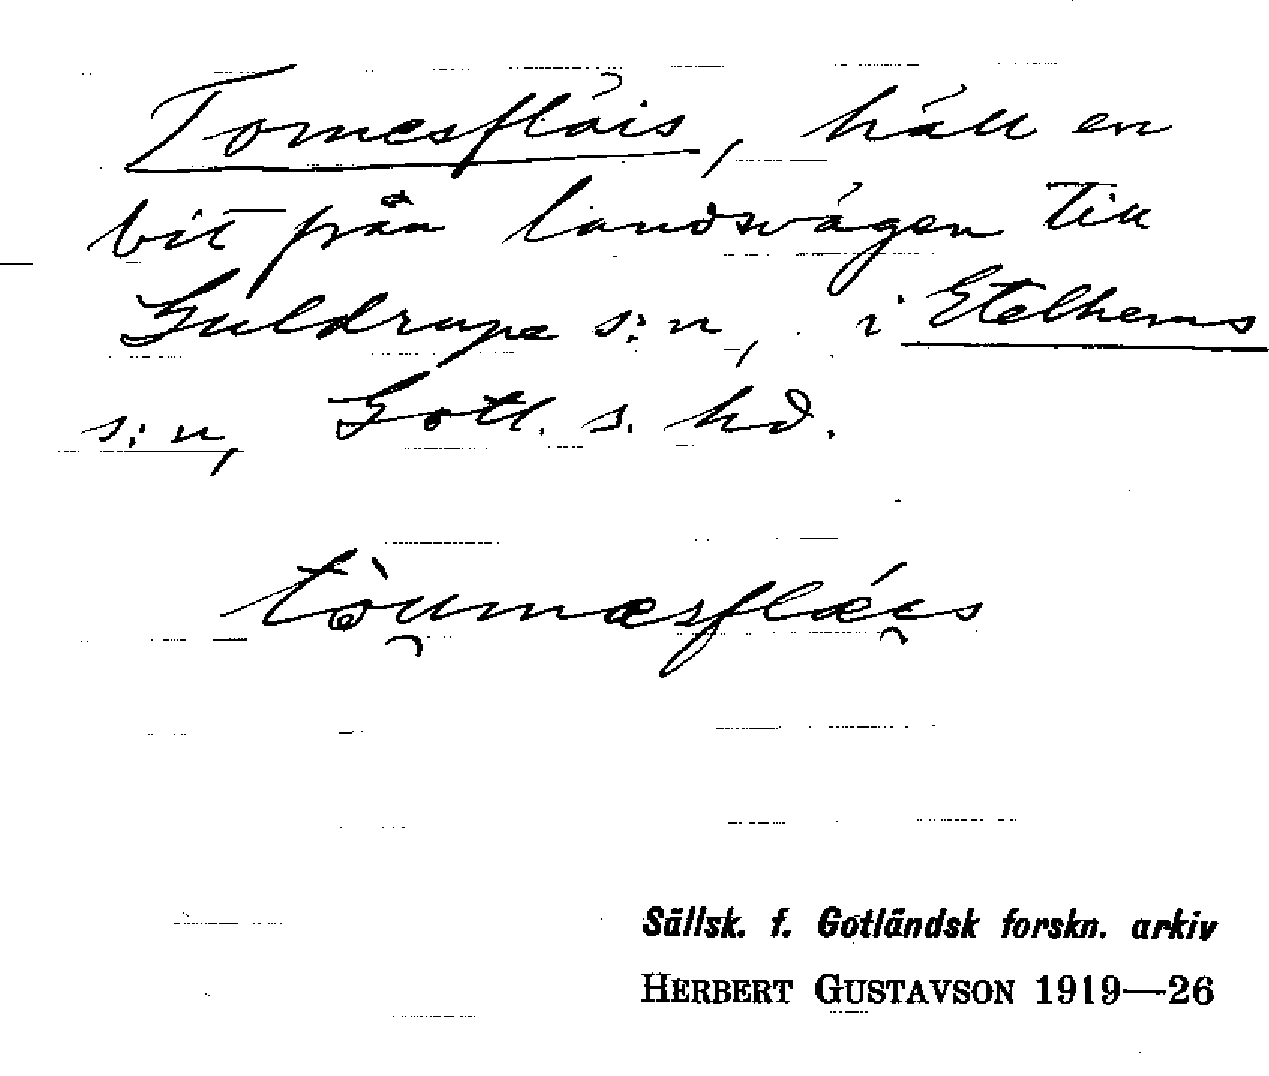 Tomesfläis, häll en
bit från landsvägen till
Guldrupe s:n, i Etelhems
s:n, Gotl. s. hd.
tò̰u̯mæsflǽi̯s
Sällsk. f. Gotländsk forskn. arkiv
HERBERT GUSTAVSON 1919—26